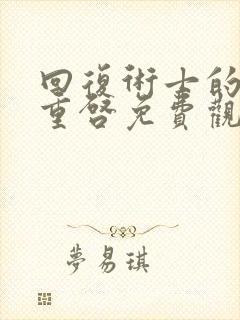 回復術士的
重啓免費觀
夢易琪